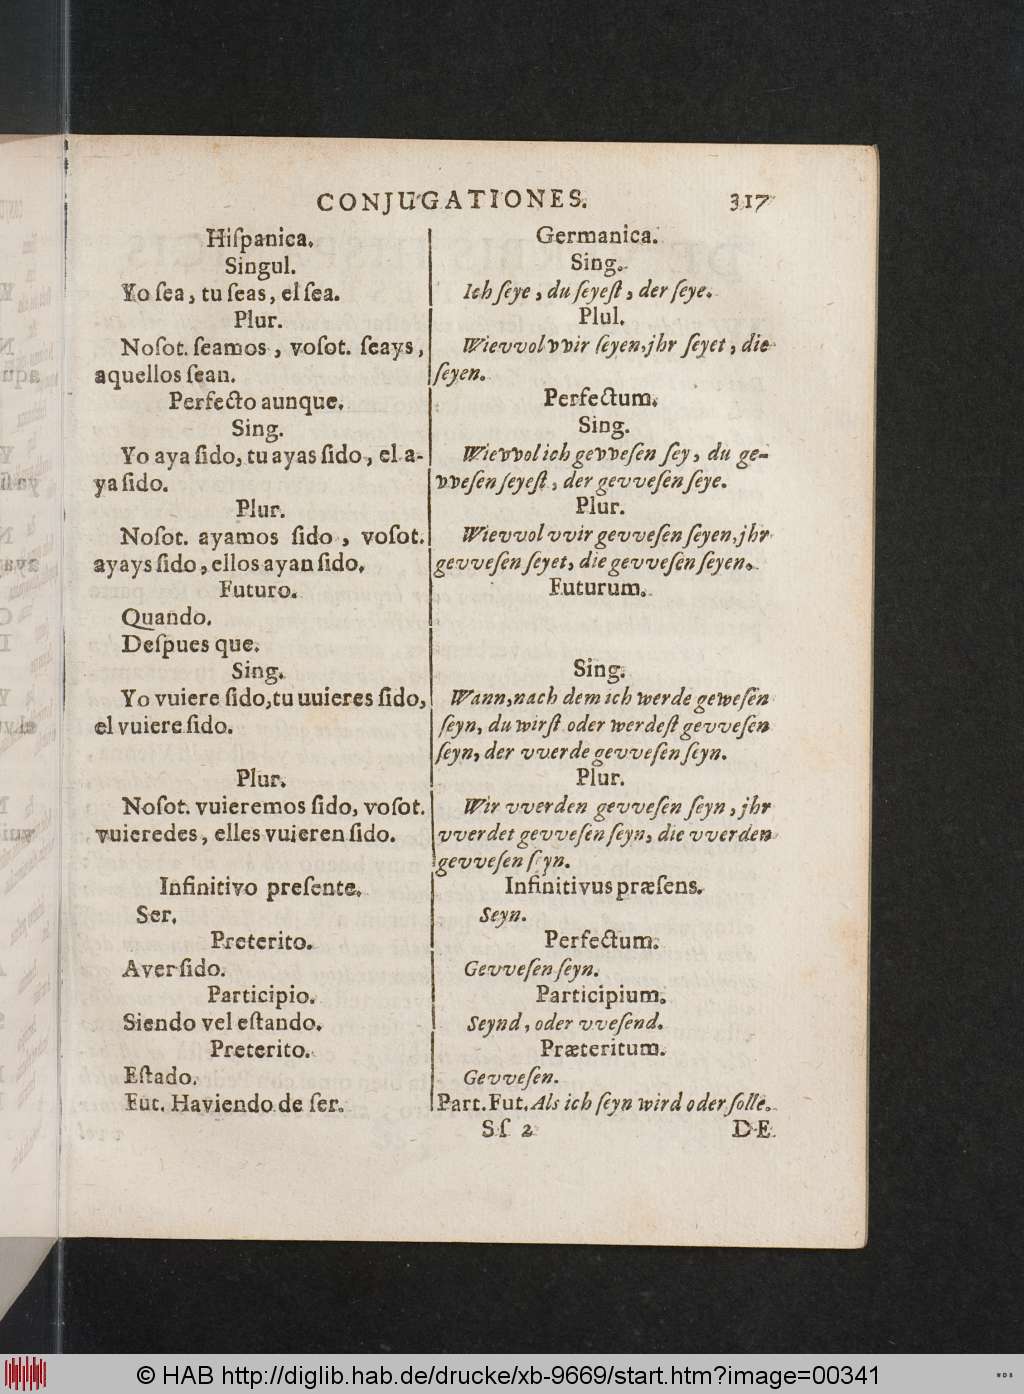 CONJUGATIONES. 317
Hiſpanica.
Singul.
Yo ſea, tu ſeas, el ſea.
Plur.
Noſot. ſeamos, voſot. ſeays,
aquellos ſean.
Perfecto aunque.
Sing.
Yo aya ſido, tu ayas ſido, el a-
ya ſido.
Plur.
Noſot. ayamos ſido, voſot.
ayays ſido, ellos ayan ſido.
Futuro.
Quando.
Deſpues que.
Sing.
Yo vuiere ſido, tu uuieres ſido,
el vuiere ſido.
Plur.
Noſot. vuieremos ſido, voſot.
vuieredes, elles vuieren ſido.
Infinitivo preſente.
Ser.
Preterito.
Aver ſido.
Participio.
Siendo vel eſtando.
Preterito.
Eſtado.
Fut. Haviendo de ſer.
Germanica.
Sing.
Ich ſeye, du ſeyeſt, der ſeye.
Plul.
Wievvol vvir ſeyen, jhr ſeyet, die
ſeyen.
Perfectum.
Sing.
Wievvol ich gevveſen ſey, du ge-
vveſen ſeyeſt, der gevveſen ſeye.
Plur.
Wievvol vvir gevveſen ſeyen, jhr
gevveſen ſeyet, die gevveſen ſeyen.
Futurum.
Sing.
Wann, nach dem ich werde geweſen
ſeyn, du wirſt oder werdeſt gevveſen
ſeyn, der vverde gevveſen ſeyn.
Plur.
Wir vverden gevveſen ſeyn, jhr
vverdet gevveſen ſeyn, die vverden
gevveſen ſeyn.
Infinitivus præſens.
Seyn.
Perfectum.
Gevveſen ſeyn.
Participium.
Seynd, oder vveſend.
Præteritum.
Gevveſen.
Part. Fut. Als ich ſeyn wird oder ſolle.
Sſ 2 DE
© HAB http://diglib.hab.de/drucke/xb-9669/start.htm?image=00341